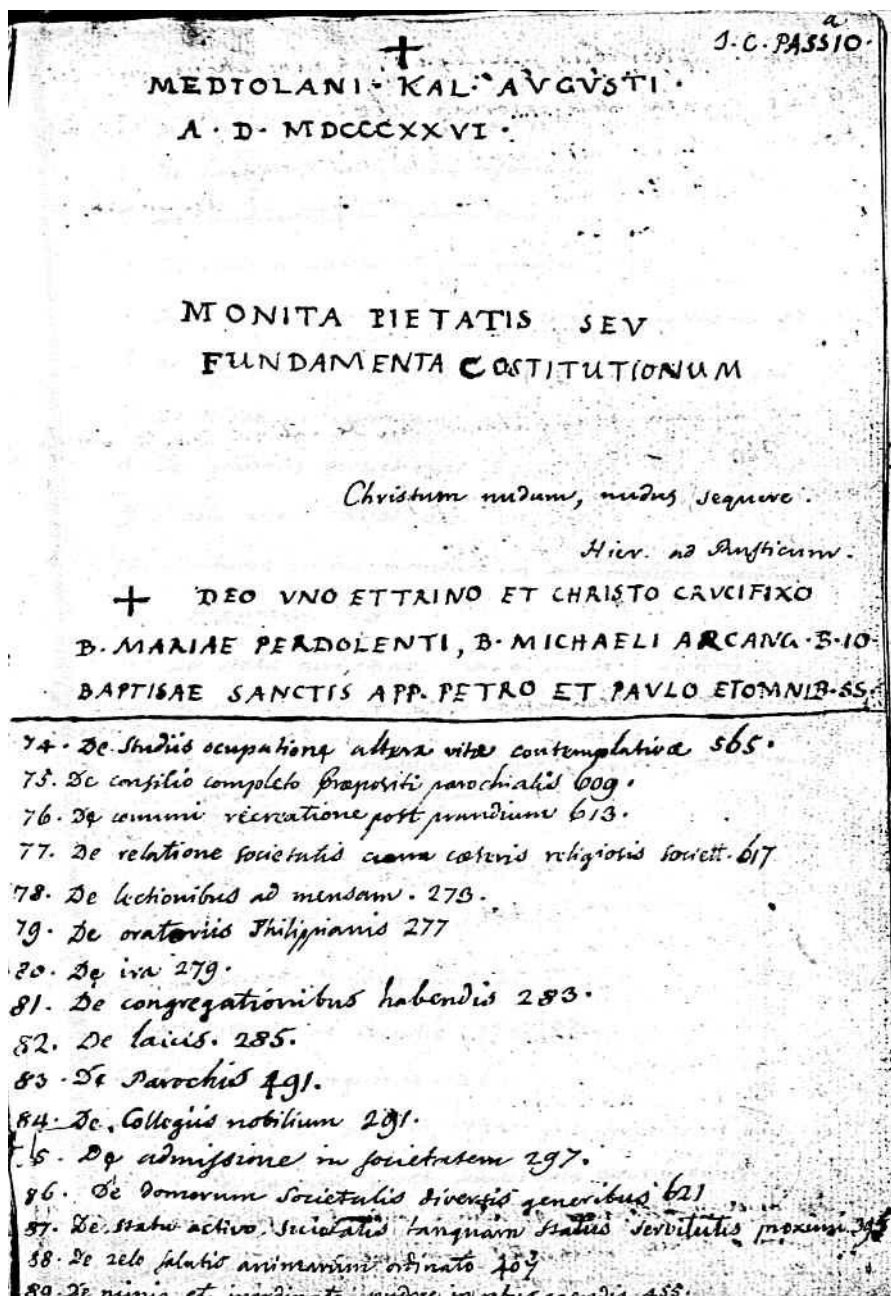 a
J. C. PASSIO.
+
MEDIOLANI. KAL. AVGVSTI.
A. D. MDCCCXXVI.
MONITA PIETATIS SEV
FUNDAMENTA COSTITUTIONUM
Christum nudum, nudus sequere.
Hier. ad Rusticum.
+ DEO VNO ET TRINO ET CHRISTO CRVCIFIXO
B. MARIAE PERDOLENTI, B. MICHAELI ARCANG. B. IO.
BAPTISAE SANCTIS APP. PETRO ET PAVLO ET OMNIB. SS.
74. De studiis ocupatione altera vitæ contemplativæ 565.
75. De consilio completo Præpositi parochialis 609.
76. De comuni recreatione post prandium 613.
77. De relatione societatis cum cæteris religiosis societt. 617
78. De lectionibus ad mensam. 273.
79. De oratoriis Philippianis 277
80. De ira 279.
81. De congregationibus habendis 283.
82. De laicis. 285.
83. De Parochis 491.
84. De Collegiis nobilium 291.
5. De admissione in societatem 297.
86. De domorum societatis diversis generibus 621
87. De statu activo societatis tanquam status servilutis proximi
88. De zelo salutis animarum ordinato 407
89. De nimio et inordinato pudore in 455.